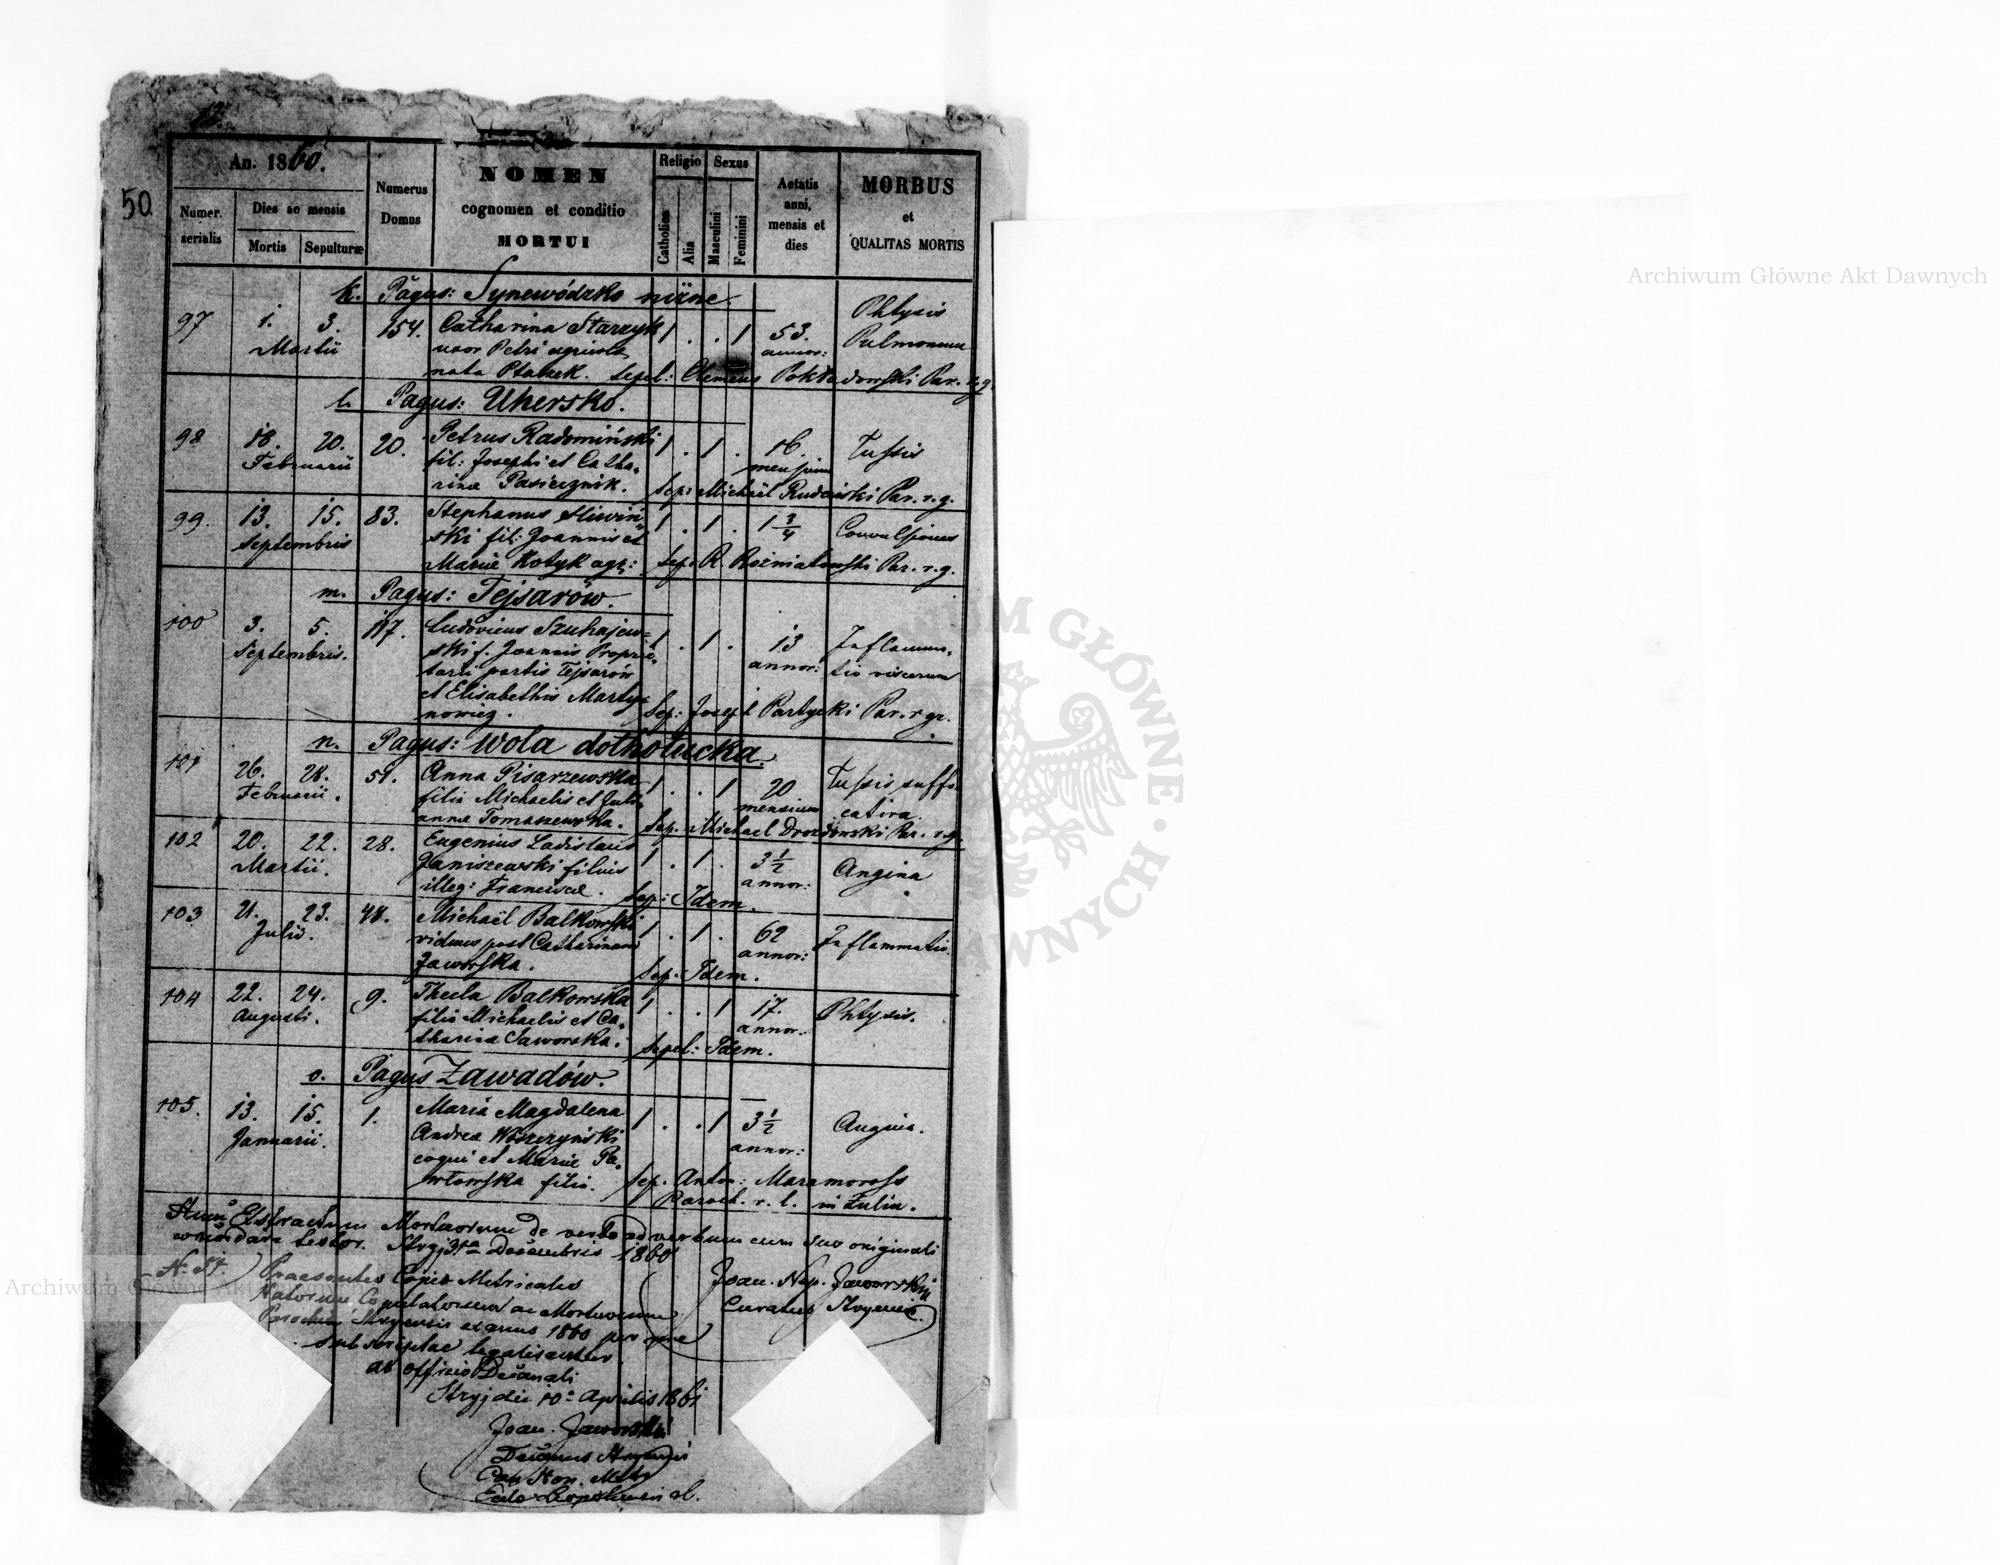 50.
An. 1860.
Numer. serialis
Dies ac mensis
Mortis
Sepulturæ
Numerus Domus
NOMEN
cognomen et conditio
MORTUI
Religio
Catholica
Alia
Sexus
Masculini
Feminini
Aetatis anni, mensis et dies
MORBUS
et
QUALITAS MORTIS
k. Pagus: Synewódzko niżne.
97 1. 3. 154. Catharina Starzyk 1 . . 1 53. Phtysis
Martii uxor Petri agricola annor: Pulmonum
nata Ptaszek. Sepel: Clemens Pokładowski Par. r. g.
l. Pagus: Uhersko.
98 18. 20. 20. Petrus Radomiński 1 . 1 . 16. Tussis
Februarii fil: Josephi et Catha- mensium
rinæ Pasiecznik. Sep: Michaël Rudawski Par. r. g.
99. 13. 15. 83. Stephanus Sliwiń- 1 . 1 . 1 3/4 Convulsiones
Septembris ski fil: Joannis et
Mariæ Kotyk agr: Sep. R. Rożniatowski Par. r. g.
m. Pagus: Tejsarów.
100 3. 5. 117. Ludovicus Szuhajew- 1 . 1 . 13 Inflamma-
Septembris. ski f. Joannis Proprie- annor: tio viscerum
tarii partis Tejsarów
et Elisabethis Marty-
nowicz. Sep: Joseph Partycki Par. r gr.
n. Pagus: Wola dołhołucka.
101 26. 28. 51. Anna Pisarzewska 1 . . 1 20 Tussis suffo-
Februarii. filia Michaelis et Juli- mensium cativa.
annæ Tomaszewska. Sep. Michael Drozdowski Par. r. g.
102 20. 22. 28. Eugenius Ladislaus 1 . 1 . 3 1/2 Angina
Martii. Janiszewski filius annor:
illeg: Franciscæ. Sep: Idem.
103 21. 23. 48. Michaël Balkowski 1 . 1 . 62 Inflammatio.
Julii. viduus post Catharinam annor:
Jaworska. Sep. Idem.
104 22. 24. 9. Thecla Balkowska 1 . . 1 17. Phtysis.
Augusti. filia Michaelis et Ca- annor.
tharinæ Jaworska. Sepel: Idem.
o. Pagus Zawadów.
105. 13. 15. 1. Maria Magdalena 1 . . 1 3 1/2 Angina.
Januarii. Andreæ Woszczyński annor:
coqui et Mariæ Pa-
włowska filia. Sep. Anton: Maramoross
Paroch. r. l. in Zulin.
Hunc Extractum Mortuorum de verbo ad verbum cum suo originali
concordare testor. Stryj 31a Decembris 1860
Joan. Nep. Jaworski
Curatus Stryensis.
N. 57.
Praesentes Copiæ Metricales
Natorum Copulatorum ac Mortuorum
Parochiæ Stryensis ex anno 1860 per me
subscriptae legalisantur
ab officio Decanali
Stryj die 10a Aprilis 1861
Joan. Jaworski
Decanus Stryensis
Can. Hon. Metr.
Archiwum Główne Akt Dawnych
Archiwum Główne Akt Dawnych
ARCHIWUM GŁÓWNE AKT DAWNYCH